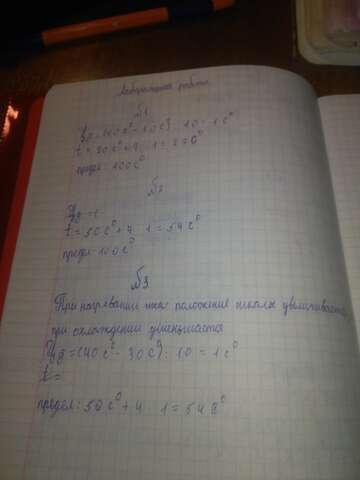 Лабораторная работа
№1
Цд=(40с°-30с°):10=1с°
t=20с°+4 1=24с°
предел=100с°
№2
Цд=1
t=50с°+4 1=54с°
предел=100с°
№3
При нагревании положение шкалы увеличивается
при охлаждении уменьшается
Цд=(40с°-30с°):10=1с°
t=
предел:50с°+4 1=54с°